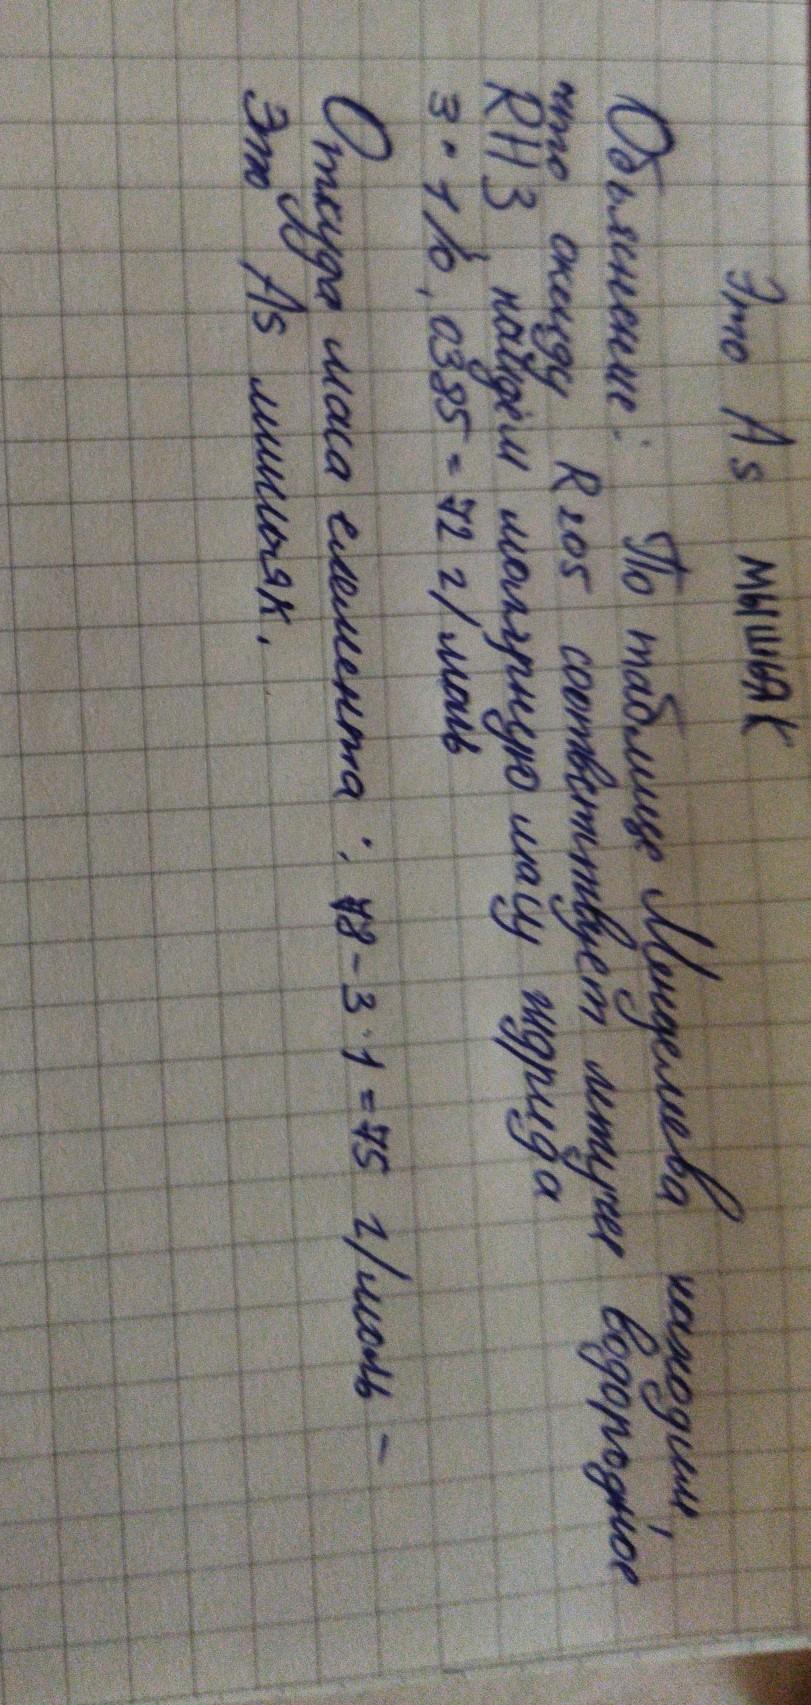 Это As мышьяк
Обьяснение: По таблице Менделеева находим,
что оксиду R2O5 соответствует летучее водородное
RH3, найдём молярную масу гидрида
3 • 1/0,0385 = 78 г/моль
Откуда маса елемента: 78 - 3 · 1 = 75 г/моль -
Это As мишьяк.